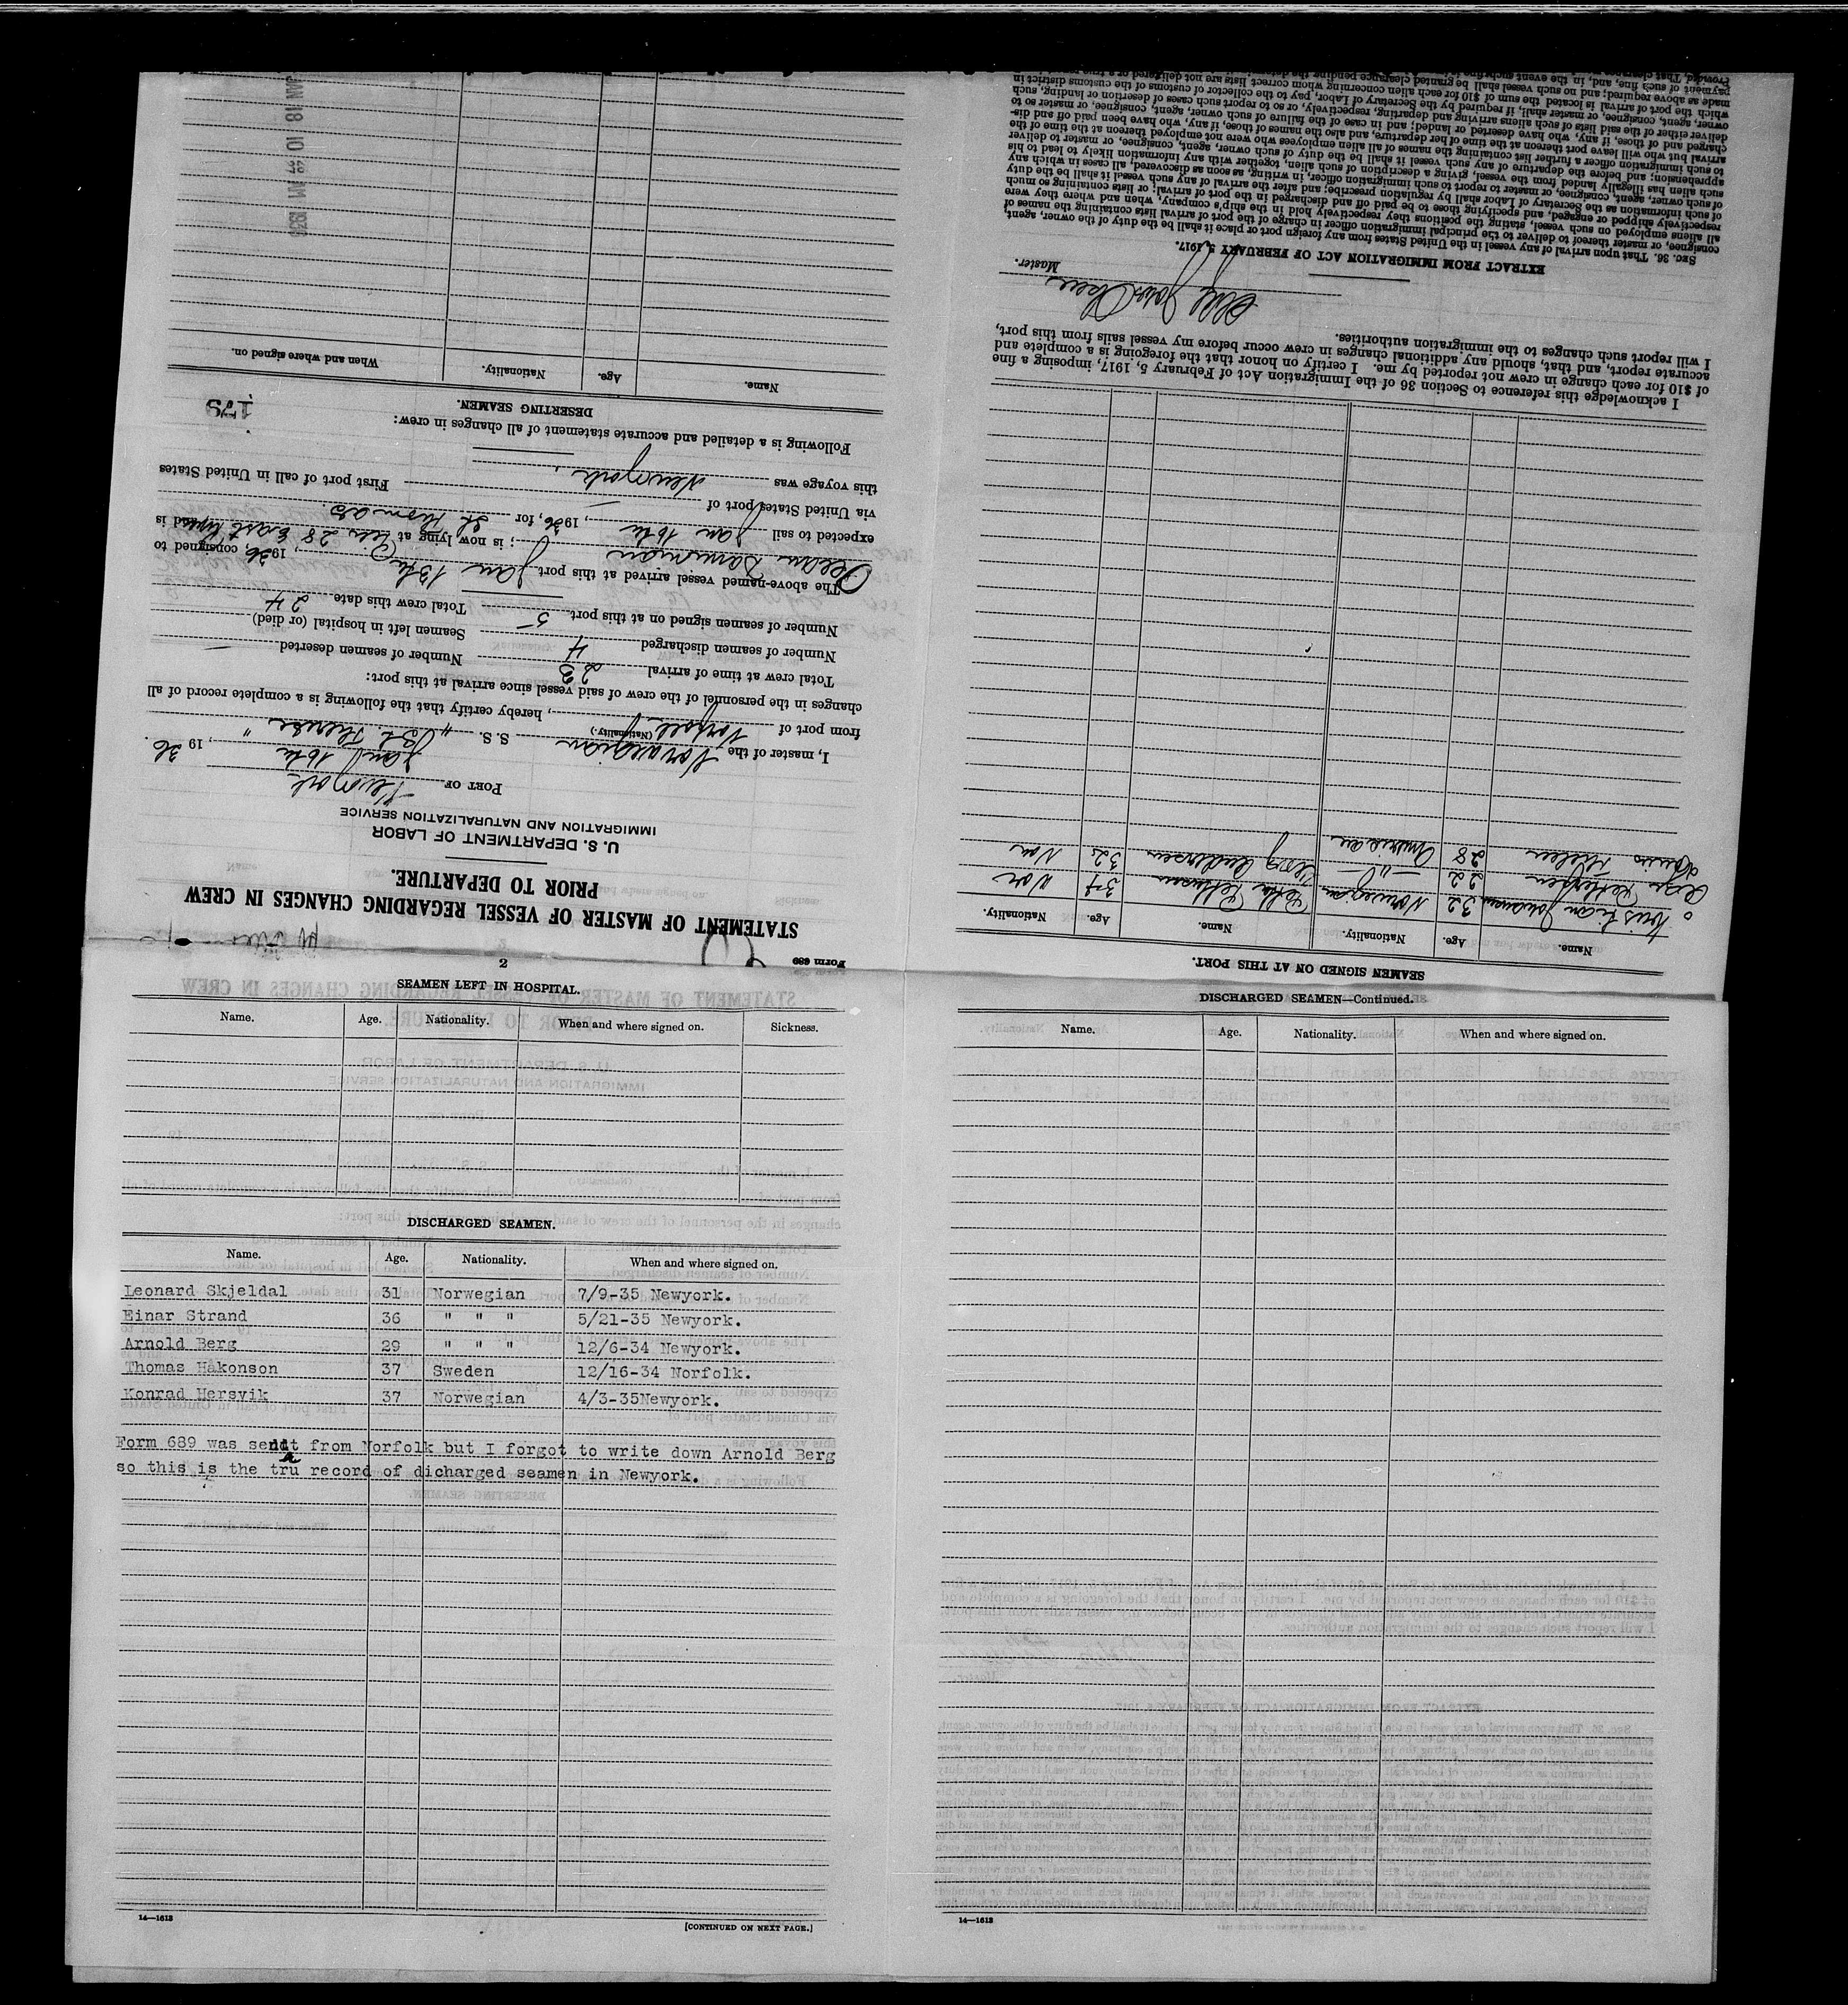 Form 689
STATEMENT OF MASTER OF VESSEL REGARDING CHANGES IN CREW
PRIOR TO DEPARTURE.
U. S. DEPARTMENT OF LABOR
IMMIGRATION AND NATURALIZATION SERVICE
PORT OF Newyork
Jan 16th, 1936.
I, master of the Norwegian S. S. "St. Therese"
(Nationality.)
from port of Norfolk, hereby certify that the following is a complete record of all
changes in the personnel of the crew of said vessel since arrival at this port:
Total crew at time of arrival 23 Number of seamen deserted —
Number of seamen discharged 4 Seamen left in hospital (or died)
Number of seamen signed on at this port 5 Total crew this date 24
The above-named vessel arrived at this port Jan 13th, 1936, consigned to
Ocean Dominion; is now lying at Pier 28 East and is
expected to sail Jan 16th, 1936, for St Thomas.
via United States port of —
this voyage was Newyork. First port of call in United States
Following is a detailed and accurate statement of all changes in crew:
179
DESERTING SEAMEN.
Name. Age. Nationality. When and where signed on.
JAN 18 10 AM 1936
SEAMEN SIGNED ON AT THIS PORT.
Name. Age. Nationality. Name. Age. Nationality.
Kristian Johansen 32 Norwegian Peder Pettersen 34 Nor
Pettersen 22 — " — Georg Andersen 32 Nor
Thelen 28 American
I acknowledge this reference to Section 36 of the Immigration Act of February 5, 1917, imposing a fine
of $10 for each change in crew not reported by me. I certify on honor that the foregoing is a complete and
accurate report, and that, should any additional changes in crew occur before my vessel sails from this port,
I will report such changes to the immigration authorities.
Master.
EXTRACT FROM IMMIGRATION ACT OF FEBRUARY 5, 1917.
SEC. 36. That upon arrival of any vessel in the United States from any foreign port or place it shall be the duty of the owner, agent,
consignee, or master thereof to deliver to the principal immigration officer in charge of the port of arrival lists containing the names of
all aliens employed on such vessel, stating the positions they respectively hold in the ship's company, when and where they were
respectively shipped or engaged, and specifying those to be paid off and discharged in the port of arrival; or lists containing so much
of such information as the Secretary of Labor shall by regulation prescribe; and after the arrival of any such vessel it shall be the duty
of such owner, agent, consignee, or master to report to such immigration officer, in writing, as soon as discovered, all cases in which any
such alien has illegally landed from the vessel, giving a description of such alien, together with any information likely to lead to his
apprehension; and before the departure of any such vessel it shall be the duty of such owner, agent, consignee, or master to deliver
to such immigration officer a further list containing the names of all alien employees who were not employed thereon at the time of the
arrival but who will leave port thereon at the time of her departure, and also the names of those, if any, who have been paid off and dis-
charged and of those, if any, who have deserted or landed; and in case of the failure of such owner, agent, consignee, or master so to
deliver either of the said lists of such aliens arriving and departing, respectively, or so to report such cases of desertion or landing, such
owner, agent, consignee, or master shall, if required by the Secretary of Labor, pay to the collector of customs of the customs district in
which the port of arrival is located the sum of $10 for each alien concerning whom correct lists are not delivered or a true
made as above required; and no such vessel shall be granted clearance pending the
payment of such fine, and, in the event such fine
Provided, That clearance
2
SEAMEN LEFT IN HOSPITAL.
Name. Age. Nationality. When and where signed on. Sickness.
DISCHARGED SEAMEN.
Name. Age. Nationality. When and where signed on.
Leonard Skjeldal 31 Norwegian 7/9-35 Newyork.
Einar Strand 36 " " " 5/21-35 Newyork.
Arnold Berg 29 " " " 12/6-34 Newyork.
Thomas Håkonson 37 Sweden 12/16-34 Norfolk.
Konrad Hersvik 37 Norwegian 4/3-35Newyork.
Form 689 was sendt from Norfolk but I forgot to write down Arnold Berg
so this is the tru record of dicharged seamen in Newyork.
14—1613
[CONTINUED ON NEXT PAGE.]
DISCHARGED SEAMEN—Continued.
Name. Age. Nationality. When and where signed on.
14—1613